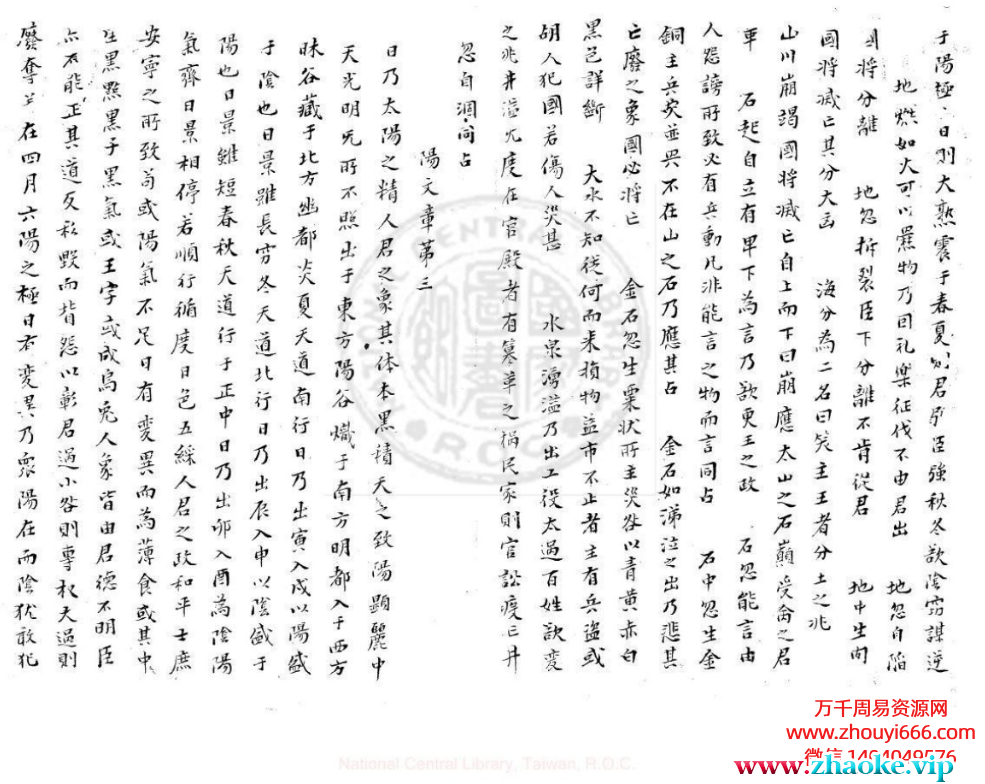 于陽極之日則大熱震于春夏則君弱臣強秋冬欲陰窃謀逆
地燃如火可以爨物乃曰礼樂征伐不由君出 地忽自陷
國將分離 地忽拆裂臣下分離不肯從君 地中生肉
國將滅亡其分大凶 海分為二名曰 主王者分土之兆
山川崩竭國將滅亡自上而下曰崩應太山之石巔受禽之君
軍 石起自立有卑下為言乃欲更王之政 石忽能言由
人怨謗所致必有兵動凡非能言之物而言同占 石中忽生金
銅主兵矣並興不在山之石乃應其占 金石如涕泣之出乃悲其
亡廢之象國必將亡 金石忽生粟狀所主災咎以青黄赤白
黑色詳斷 大水不知從何而来損物益市不止者主有兵盜或
胡人犯國若傷人災甚 水泉湧溢乃出工役太過百姓欲変
之兆井溢尤度在官殿者有篡革之禍民家則官訟疫亡井
忽自涸同占
陽文章苐三
日乃太陽之精人君之象其体本黑積天之致陽顕麗中
天光明尤所不照出于東方陽谷熾于南方明都入于西方
昧谷藏于北方幽都炎夏天道南行日乃出寅入戌以陽盛
于陰也日景雖長窮冬天道北行日乃出辰入申以陰盛于
陽也日景雖短春秋天道行于正中日乃出卯入酉為陰陽
氣齊日景相停若順行循度日色五綵人君之政和平士庶
安寧之所致苟或陽氣不足日有変異而為薄食或其中
生黒㸃黒子黒氣或王字或成烏兎人象皆由君德不明臣
亦不能正其道反私毀而背怨以彰君過小咎則專权大過則
廢奪 在四月六陽之極日有変異乃衆陽在而陰犹敢犯
National Central Library, Taiwan, R.O.C.
万千周易资源网
www.zhouyi666.com
微信1494049576
www.zhaoke.vip